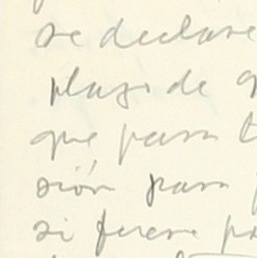 se declare
plazo de
que para
sión para
si fuere